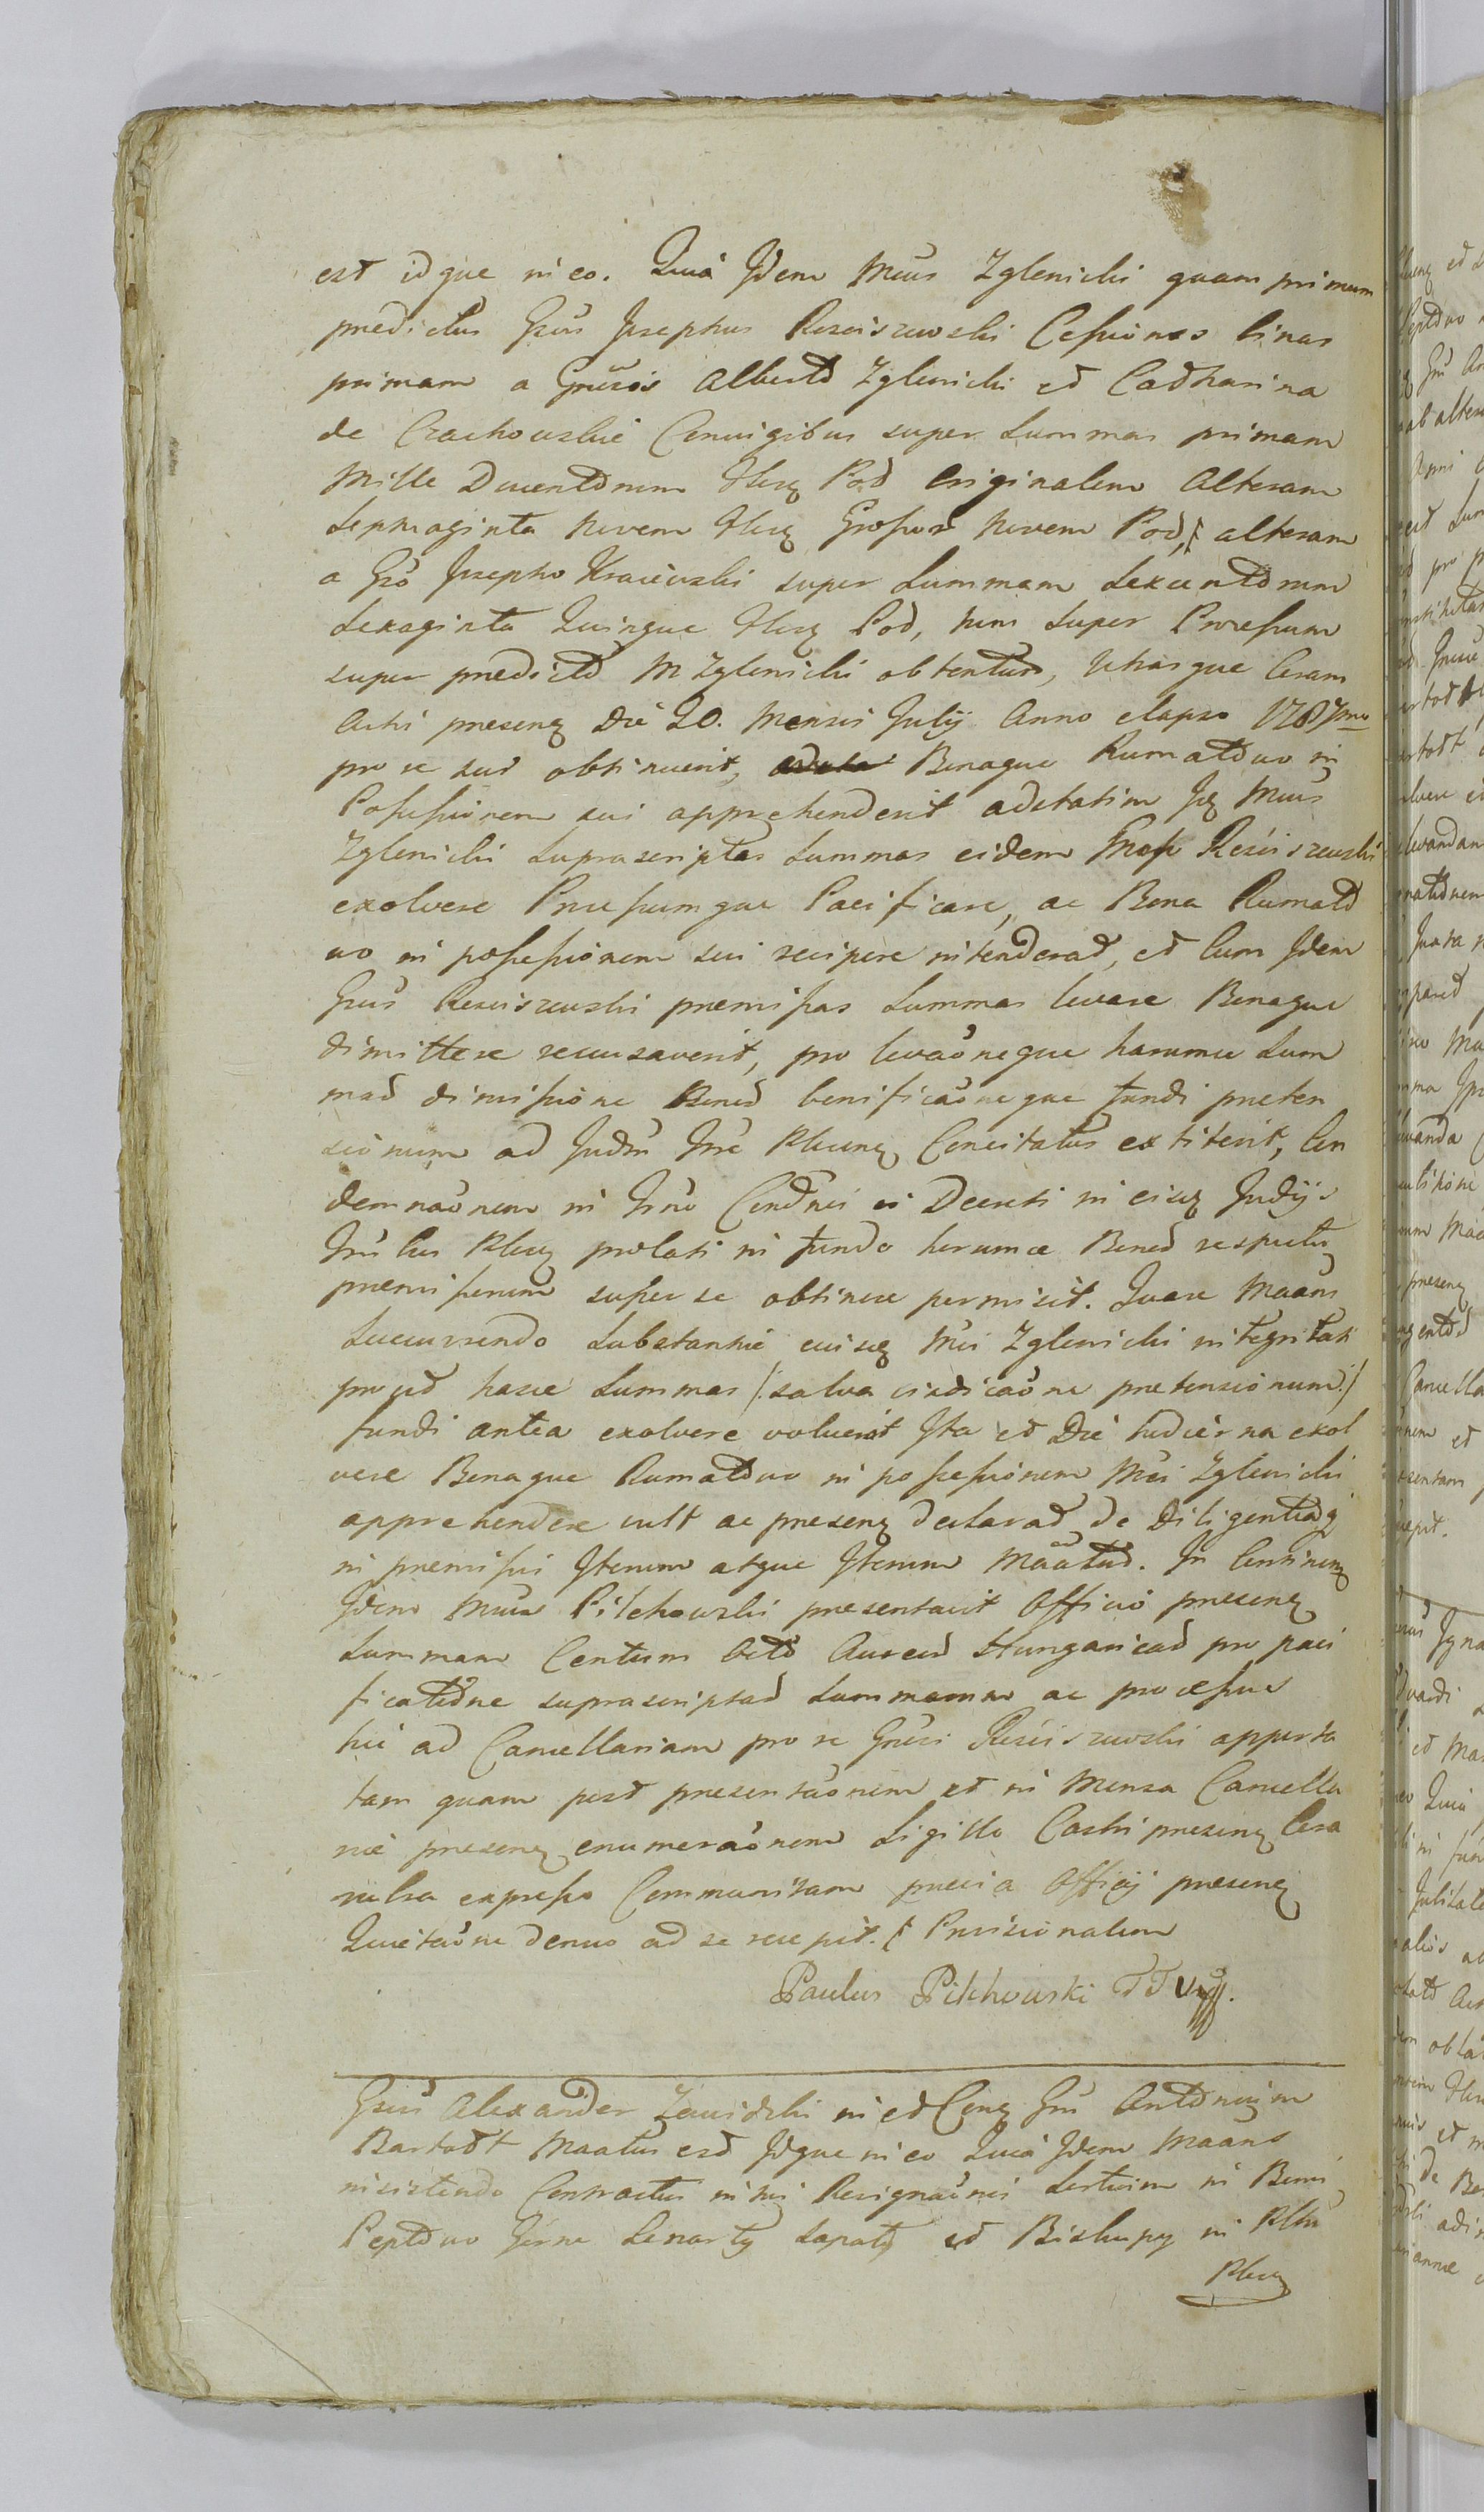 est idque in eo. Quia Idem Mcus Zglenicki quam primum
predictus Gsus Josephus Rosciszewski Cessiones binas
primam a Grosis Alberto Zglenicki et Catharina
de Czachowskie Conuigibus super Summas primam
Mille Ducentorum flor Pol originalem Alteram
Septuaginta Novem flor Grossor Novem Pol, alteram
a Gso Josepho Kraiewski super Summam Sexcentorum
Sexaginta Quinque flor Pol, tum super Processum
super predicto M Zglenicki obtentum, Utrasque Coram
Actis presen Die 20. Mensis Julij Anno elapso 1787mo
pro se suis obtinuerit, Bonaque Rumatowo in
Possessionem sui apprehenderit adstatim Iq Mcus
Zglenicki Suprascriptas Summas eidem Rosciszewski
exolvere Processumque Pacificare, ac Bona Rumato
wo in possessionem sui recipere intenderat, et Cum Idem
Gsus Rosciszewski premissas Summas levare Bonaque
dimittere recusaverit, pro levaoneque harumce Sum
mar dimissione Bonor bonificaoneque fundi preten
sionum ad Judm Tre Plocen Concitatus extiterit, Con
demnaonem in Decreti in eisq Judijs
prolati in fundo horumce Bonor respectu
premissorum super se obtinere permisit. Quare Maans
Succurrendo Substantie eiusq Mci Zglenicki integritati
prout hasce Summas /: salva vindicaone pretensionum :/
fundi antea exolvere voluerat Ita et Die hodierna exol
vere Bonaque Rumatowo in possessionem Mci Zglenicki
apprehendere vult ac presen declarat de Diligentiaq
in premissis Iterum atque Iterum Maatur. In Continen
Idem Mcus Pilchowski presentavit Officio presen
Summam Centum Octo Aureor Hungaricad pro paci
ficatione suprascriptar Summarum ac processus
hic ad Cancellariam pro se Grosi Rosciszewski apporta
tam quam post presentaonem et in Mensa Cancella
rie presen enumeraonem Sigillo Castri presen Cera
rubra expresso Communitam previa Officij presen
Quietaone denuo ad se recepit. Provisionalem
Paulus Pilchowski
Gsus Alexander Zawidzki in et Con Gsu Antonium
Bartolt Maatus est Idque in eo Quia Idem Maans
insistendo Contractui Resignaonis Sortium in Bonis
Peptowo Zerne Lenarty Sapaty et Biskupy in Pttu
Plocen